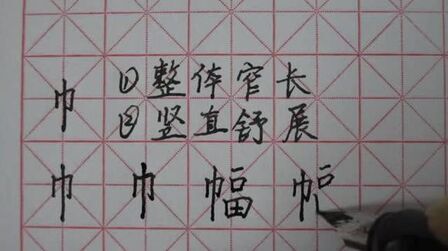 ①整体窄长
巾
②竖直舒展
巾 巾 幅